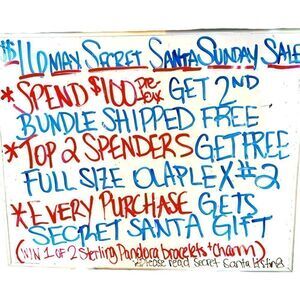 $110 MAX SECRET SANTA SUNDAY SALE
* SPEND $100 Pre-tax GET 2ND
BUNDLE SHIPPED FREE
* TOP 2 SPENDERS GET FREE
FULL SIZE OLAPLEX #2
* EVERY PURCHASE GETS
SECRET SANTA GIFT
(WIN 1 OF 2 Sterling Pandora bracelets + charm)
* Please read Secret Santa listing